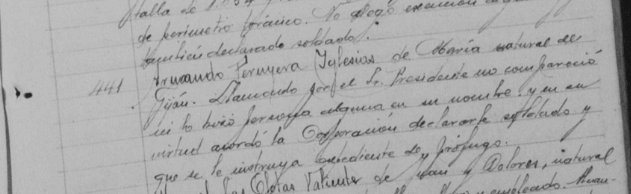 talla
de perímetro torácico. No alegó exención
declarado soldado.
441 Fernando Peruyera Iglesias de María natural de
Gijón. Llamado por el Sr. Presidente no compareció
ni lo hizo persona alguna en su nombre y en su
virtud acordó la Corporación declararle soldado y
que se le instruya expediente de prófugo.
Valiente de Juan y Dolores, natural
empleado